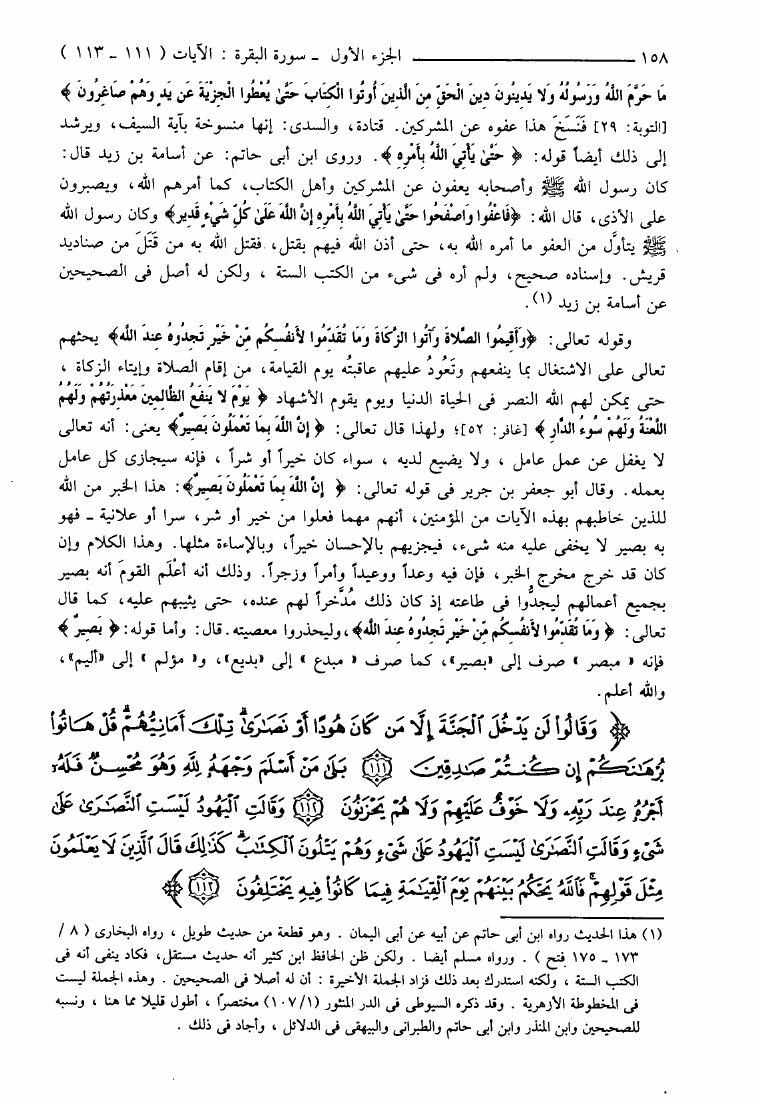 ١٥٨ ـــــــــــــــــــــــ الجزء الأول - سورة البقرة : الآيات ( ١١١ - ١١٣ )
مَا حَرَّمَ اللَّهُ وَرَسُولُهُ وَلا يَدِينُونَ دِينَ الْحَقِّ مِنَ الَّذِينَ أُوتُوا الْكِتَابَ حَتَّىٰ يُعْطُوا الْجِزْيَةَ عَن يَدٍ وَهُمْ صَاغِرُونَ ﴾
[التوبة: ٢٩] فَنَسَخَ هذا عفوه عن المشركين. قتادة، والسدى: إنها منسوخة بآية السيف، ويرشد
إلى ذلك أيضاً قوله: ﴿ حَتَّىٰ يَأْتِيَ اللَّهُ بِأَمْرِهِ ﴾. وروى ابن أبى حاتم: عن أسامة بن زيد قال:
كان رسول الله ﷺ وأصحابه يعفون عن المشركين وأهل الكتاب، كما أمرهم الله، ويصبرون
على الأذى، قال الله: ﴿فَاعْفُوا وَاصْفَحُوا حَتَّىٰ يَأْتِيَ اللَّهُ بِأَمْرِهِ إِنَّ اللَّهَ عَلَىٰ كُلِّ شَيْءٍ قَدِير﴾ وكان رسول الله
ﷺ يتأوَّل من العفو ما أمره الله به، حتى أذن الله فيهم بقتل، فقتل الله به من قَتَلَ من صناديد
قريش. وإسناده صحيح، ولم أره فى شىء من الكتب الستة ، ولكن له أصل فى الصحيحين
عن أسامة بن زيد (١).
وقوله تعالى: ﴿وَأَقِيمُوا الصَّلاةَ وَآتُوا الزَّكَاةَ وَمَا تُقَدِّمُوا لأَنفُسِكُم مِّنْ خَيْرٍ تَجِدُوهُ عِندَ اللَّه﴾ يحثهم
تعالى على الاشتغال بما ينفعهم وتَعُودُ عليهم عاقبتُه يوم القيامة، من إقام الصلاة وإيتاء الزكاة ،
حتى يمكن لهم الله النصر فى الحياة الدنيا ويوم يقوم الأشهاد ﴿ يَوْمَ لا يَنفَعُ الظَّالِمِينَ مَعْذِرَتُهُمْ وَلَهُمُ
اللَّعْنَةُ وَلَهُمْ سُوءُ الدَّارِ ﴾ [غافر: ٥٢]؛ ولهذا قال تعالى: ﴿ إِنَّ اللَّهَ بِمَا تَعْمَلُونَ بَصِيرٌ﴾ يعنى: أنه تعالى
لا يغفل عن عمل عامل ، ولا يضيع لديه ، سواء كان خيراً أو شراً ، فإنه سيجازى كل عامل
بعمله. وقال أبو جعفر بن جرير فى قوله تعالى: ﴿ إِنَّ اللَّهَ بِمَا تَعْمَلُونَ بَصِيرٌ﴾: هذا الخبر من الله
للذين خاطبهم بهذه الآيات من المؤمنين، أنهم مهما فعلوا من خير أو شر، سرا أو علانية - فهو
به بصير لا يخفى عليه منه شىء، فيجزيهم بالإحسان خيراً، وبالإساءة مثلها. وهذا الكلام وإن
كان قد خرج مخرج الخبر، فإن فيه وعداً ووعيداً وأمراً وزجراً. وذلك أنه أعْلَم القومَ أنه بصير
بجميع أعمالهم ليجدُّوا فى طاعته إذ كان ذلك مُدَّخراً لهم عنده، حتى يثيبهم عليه، كما قال
تعالى: ﴿ وَمَا تُقَدِّمُوا لأَنفُسِكُم مِّنْ خَيْرٍ تَجِدُوهُ عِندَ اللَّه﴾، وليحذروا معصيته. قال: وأما قوله: ﴿ بَصِيرٌ ﴾
فإنه « مبصر » صرف إلى «بصير»، كما صرف « مبدع » إلى «بديع»، و« مؤلم » إلى «أليم»،
والله أعلم.
﴿ وَقَالُوا۟ لَن يَدْخُلَ ٱلْجَنَّةَ إِلَّا مَن كَانَ هُودًا أَوْ نَصَـٰرَىٰ ۗ تِلْكَ أَمَانِيُّهُمْ ۗ قُلْ هَاتُوا۟
بُرْهَـٰنَكُمْ إِن كُنتُمْ صَـٰدِقِينَ ١١١ بَلَىٰ مَنْ أَسْلَمَ وَجْهَهُۥ لِلَّهِ وَهُوَ مُحْسِنٌ فَلَهُۥٓ
أَجْرُهُۥ عِندَ رَبِّهِۦ وَلَا خَوْفٌ عَلَيْهِمْ وَلَا هُمْ يَحْزَنُونَ ١١٢ وَقَالَتِ ٱلْيَهُودُ لَيْسَتِ ٱلنَّصَـٰرَىٰ عَلَىٰ
شَىْءٍ وَقَالَتِ ٱلنَّصَـٰرَىٰ لَيْسَتِ ٱلْيَهُودُ عَلَىٰ شَىْءٍ وَهُمْ يَتْلُونَ ٱلْكِتَـٰبَ ۗ كَذَٰلِكَ قَالَ ٱلَّذِينَ لَا يَعْلَمُونَ
مِثْلَ قَوْلِهِمْ ۚ فَٱللَّهُ يَحْكُمُ بَيْنَهُمْ يَوْمَ ٱلْقِيَـٰمَةِ فِيمَا كَانُوا۟ فِيهِ يَخْتَلِفُونَ ١١٣ ﴾
(١) هذا الحديث رواه ابن أبى حاتم عن أبيه عن أبى اليمان . وهو قطعة من حديث طويل ، رواه البخارى ( ٨ /
١٧٣ - ١٧٥ فتح ) . ورواه مسلم أيضا . ولكن ظن الحافظ ابن كثير أنه حديث مستقل، فكاد ينفى أنه فى
الكتب الستة ، ولكنه استدرك بعد ذلك فزاد الجملة الأخيرة : أن له أصلا فى الصحيحين . وهذه الجملة ليست
فى المخطوطة الأزهرية . وقد ذكره السيوطى فى الدر المنثور (١/ ١٠٧) مختصراً ، أطول قليلا مما هنا ، ونسبه
للصحيحين وابن المنذر وابن أبى حاتم والطبرانى والبيهقى فى الدلائل ، وأجاد فى ذلك .